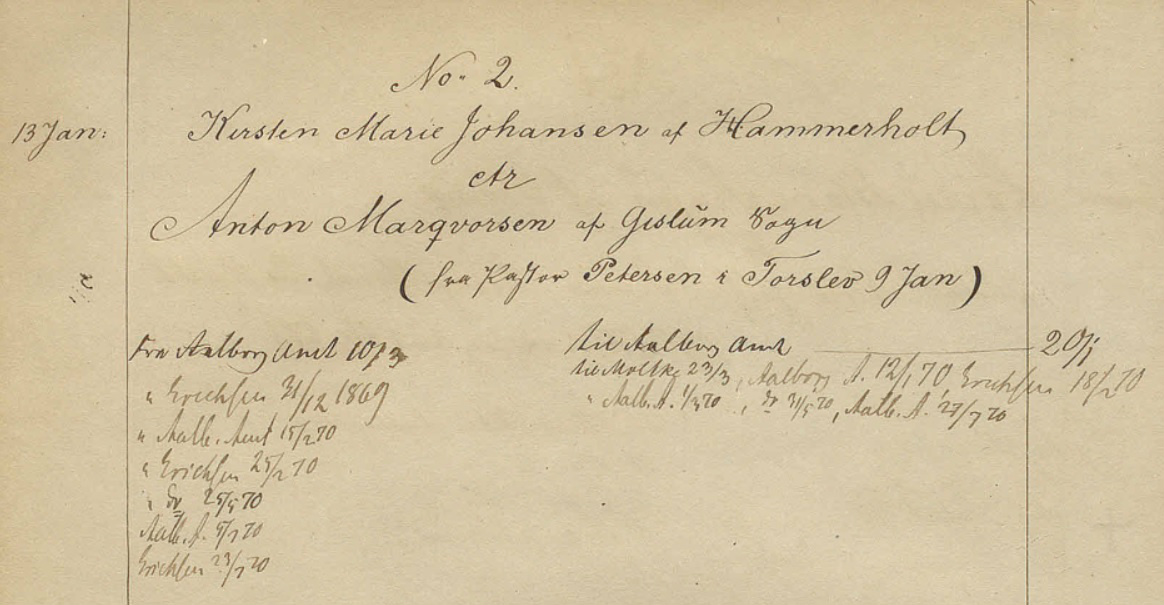 No. 2.
13 Jan:
Kirsten Marie Johansen af Hammerholt
ctr
Anton Marqvorsen af Gislŭm Sogn
(fra Pastor Petersen i Torslev 9 Jan)
Fra Aalborg Amt 10/3
til Aalborg Amt 20/1
til Moltke 23/3, Aalborg A. 12/1 70, Erichsen 18/2 70
" Erichsen 31/12 1869
" Aalb. A. 1/3 70, do 31/5 70, Aalb. A. 27/7 70
" Aalb. Amt 15/2 70
" Erichsen 25/2 70
" do 25/5 70
Aalb. A. 5/7 70
Erichsen 23/7 70